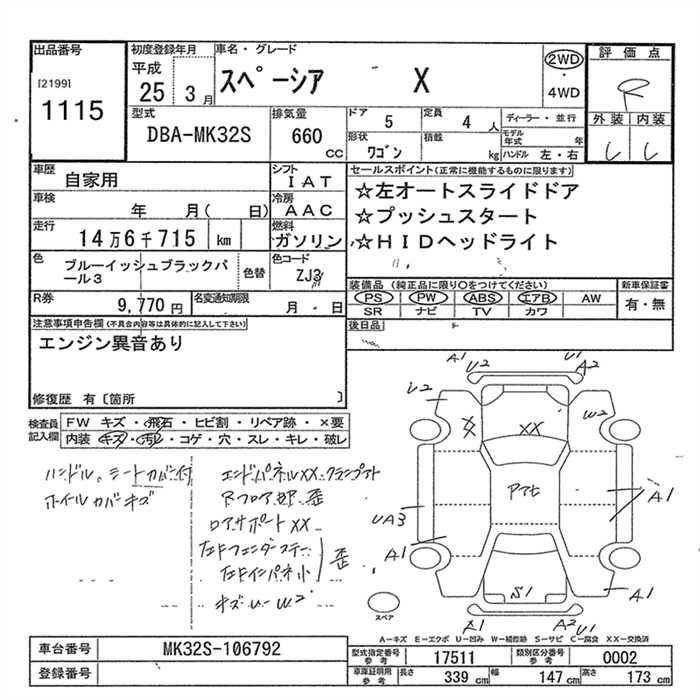 出品番号
[2199]
1115
初度登録年月
平成
25 3月
車名・グレード
スペーシア X
2WD
・
4WD
評価点
R
外装 内装
し し
型式
DBA-MK32S
排気量
660
cc
ドア
5
定員
4 人
形状
ワゴン
積載
kg
ディーラー・並行
モデル年式 年
ハンドル 左・右
車歴
自家用
シフト
IAT
車検
年 月( 日)
冷房
AAC
走行
14万6千715 km
燃料
ガソリン
色
ブルーイッシュブラックパール3
色替
色コード
ZJ3
R券
9,770円
名変通知期限
月 日
セールスポイント(正常に機能するものに限ります)
☆左オートスライドドア
☆プッシュスタート
☆HIDヘッドライト
装備品 (純正品に限り○をつけてください)
PS PW ABS エアB AW
SR ナビ TV カワ
新車保証書
有・無
後日品
注意事項申告欄(不具合内容等は具体的に記入して下さい)
エンジン異音あり
修復歴 有〔箇所 〕
検査員記入欄
FW キズ・飛石・ヒビ割・リペア跡・×要
内装 キズ・汚レ・コゲ・穴・スレ・キレ・破レ
ハンドル、シートカバー付
ホイルカバキズ
エンドパネルXX.クランプアト
Rフロア部歪
ロアサポートXX
左右フェンダーステー
左右インパネ小
歪
キズ U W2
A1
U2
U1
A2
U2
W2
XX
XX
アアセ
UA3
A1
A1
A1
S1
A1
A2
U1
スペア
A－キズ E－エクボ U－凹み W－補修跡 S－サビ C－腐食 XX－交換済
車台番号
MK32S-106792
登録番号
型式指定番号
参考
17511
類別区分番号
参考
0002
車庫証明用
参考
長さ
339 cm
幅
147 cm
高さ
173 cm